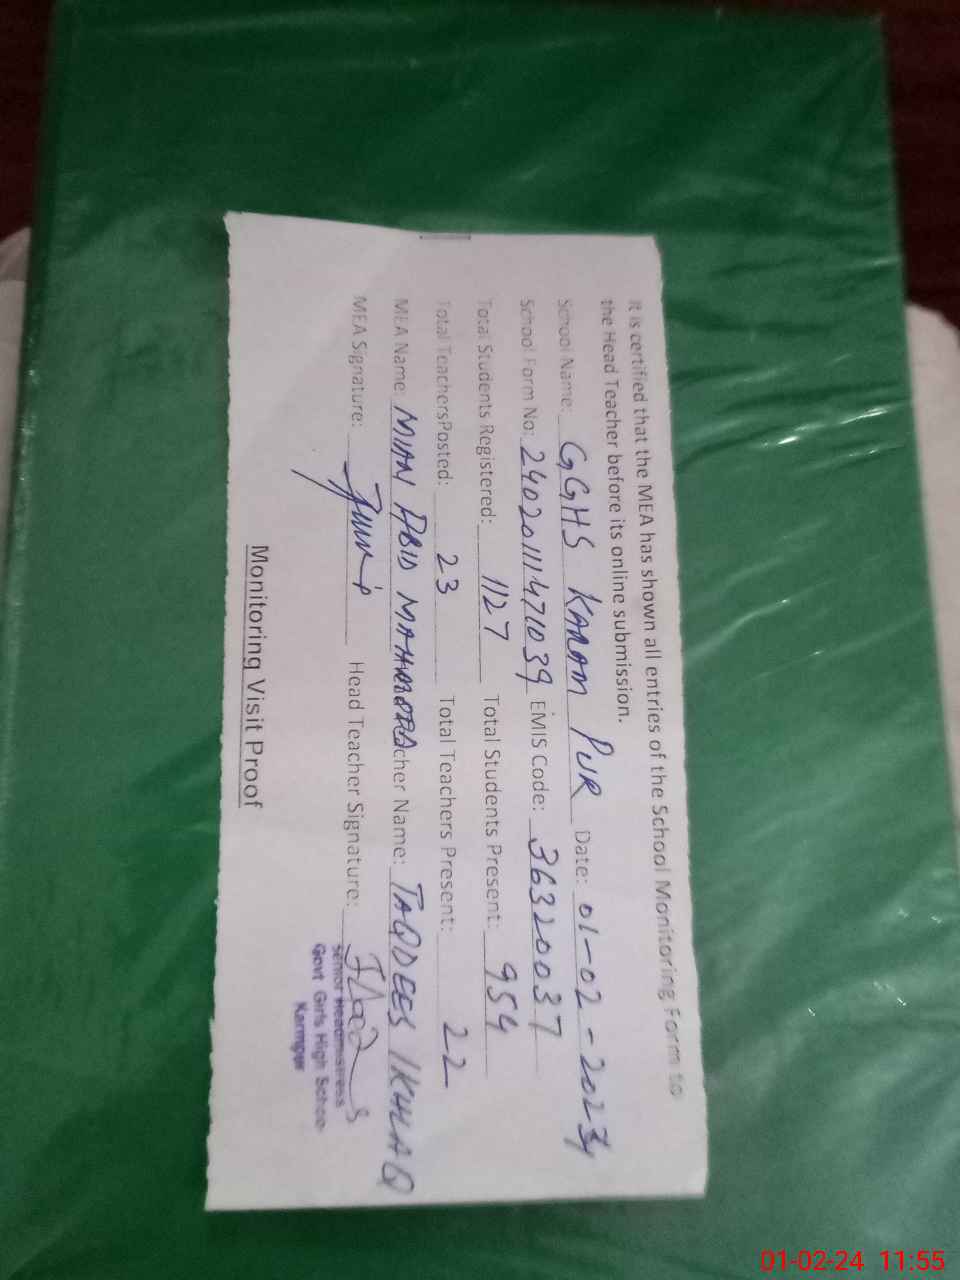 It is certified that the MEA has shown all entries of the School Monitoring Form to
the Head Teacher before its online submission.
School Name: GGHS KARAM PUR Date: 01-02-2024
School Form No: 24020111471039 EMIS Code: 36320037
Total Students Registered: 1127 Total Students Present: 954
Total TeachersPosted: 23 Total Teachers Present: 22
MEA Name: MIAN ABID MAHMOOD cher Name: TAQDEES IKHLAQ
MEA Signature: Head Teacher Signature:
Senior Headmistress
Govt Girls High School
Karmpur
Monitoring Visit Proof
01-02-24 11:55